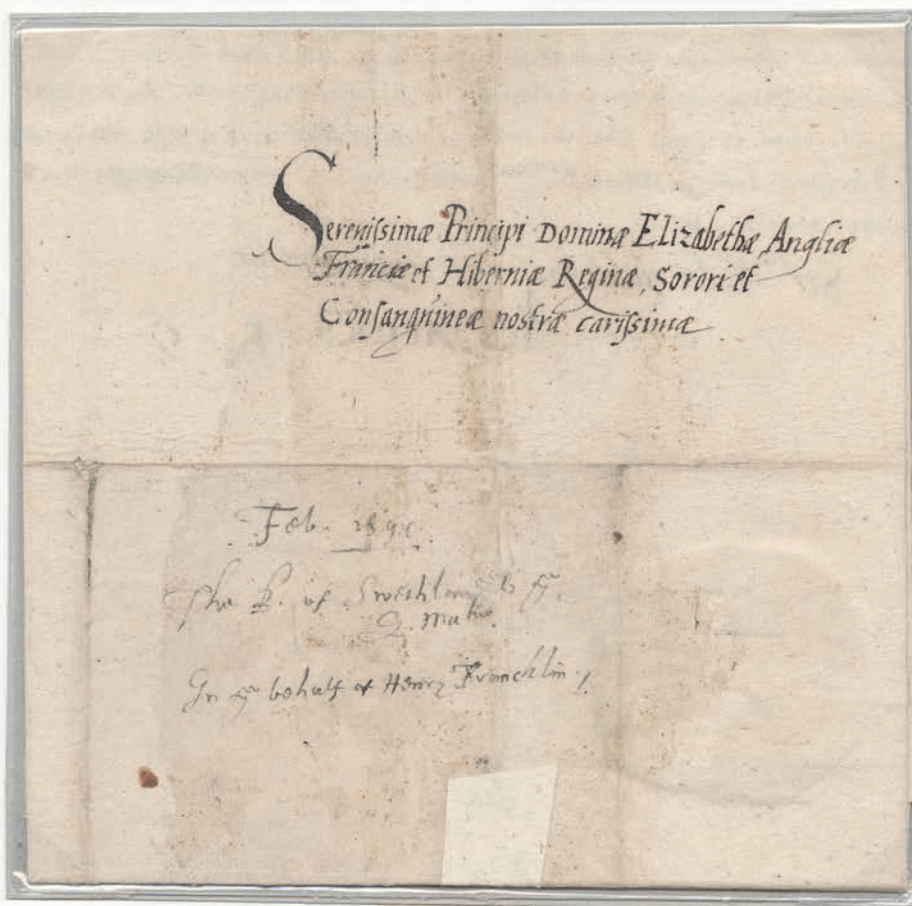 Sereniſsimæ Principi Dominæ Elizabethæ Angliæ
Franciæ et Hiberniæ Reginæ, Sorori et
Conſanguineæ nostræ cariſsimæ
Feb.
The K. of Swethland to yͤ
Q. Maᵗⁱᵉ.
In yͤ behalf of Henry Francklin